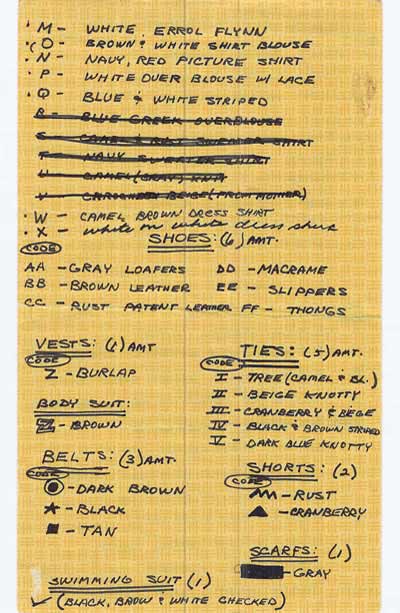 · M - WHITE, ERROL FLYNN
· O - BROWN & WHITE SHIRT BLOUSE
· N - NAVY, RED PICTURE SHIRT
· P - WHITE OVER BLOUSE W/ LACE
· Q - BLUE & WHITE STRIPED
R - BLUE GREEK OVERBLOUSE
S - CAMEL & SHIRT
T - NAVY SWEATER SHIRT
U - CAMEL (GRAY) KNIT
V - CAROCHETED BEIGE (FROM MOTHER)
· W - CAMEL BROWN DRESS SHIRT
· X - white on white dress shirt
SHOES: (6) AMT.
CODE
AA - GRAY LOAFERS
BB - BROWN LEATHER
CC - RUST PATENT LEATHER
DD - MACRAME
EE - SLIPPERS
FF - THONGS
VESTS: (1) AMT
CODE
Z - BURLAP
BODY SUIT:
ZZ - BROWN
BELTS: (3) AMT.
CODE
- DARK BROWN
★ - BLACK
■ - TAN
SWIMMING SUIT (1)
✓ (BLACK, BROW & WHITE CHECKED)
TIES: (5) AMT.
CODE
I - TREE (CAMEL & BL.)
II - BEIGE KNOTTY
III - CRANBERRY & BEGE
IV - BLACK & BROWN STRIPED
V - DARK BLUE KNOTTY
SHORTS: (2)
CODE
- RUST
▲ - CRANBERRY
SCARFS: (1)
- GRAY